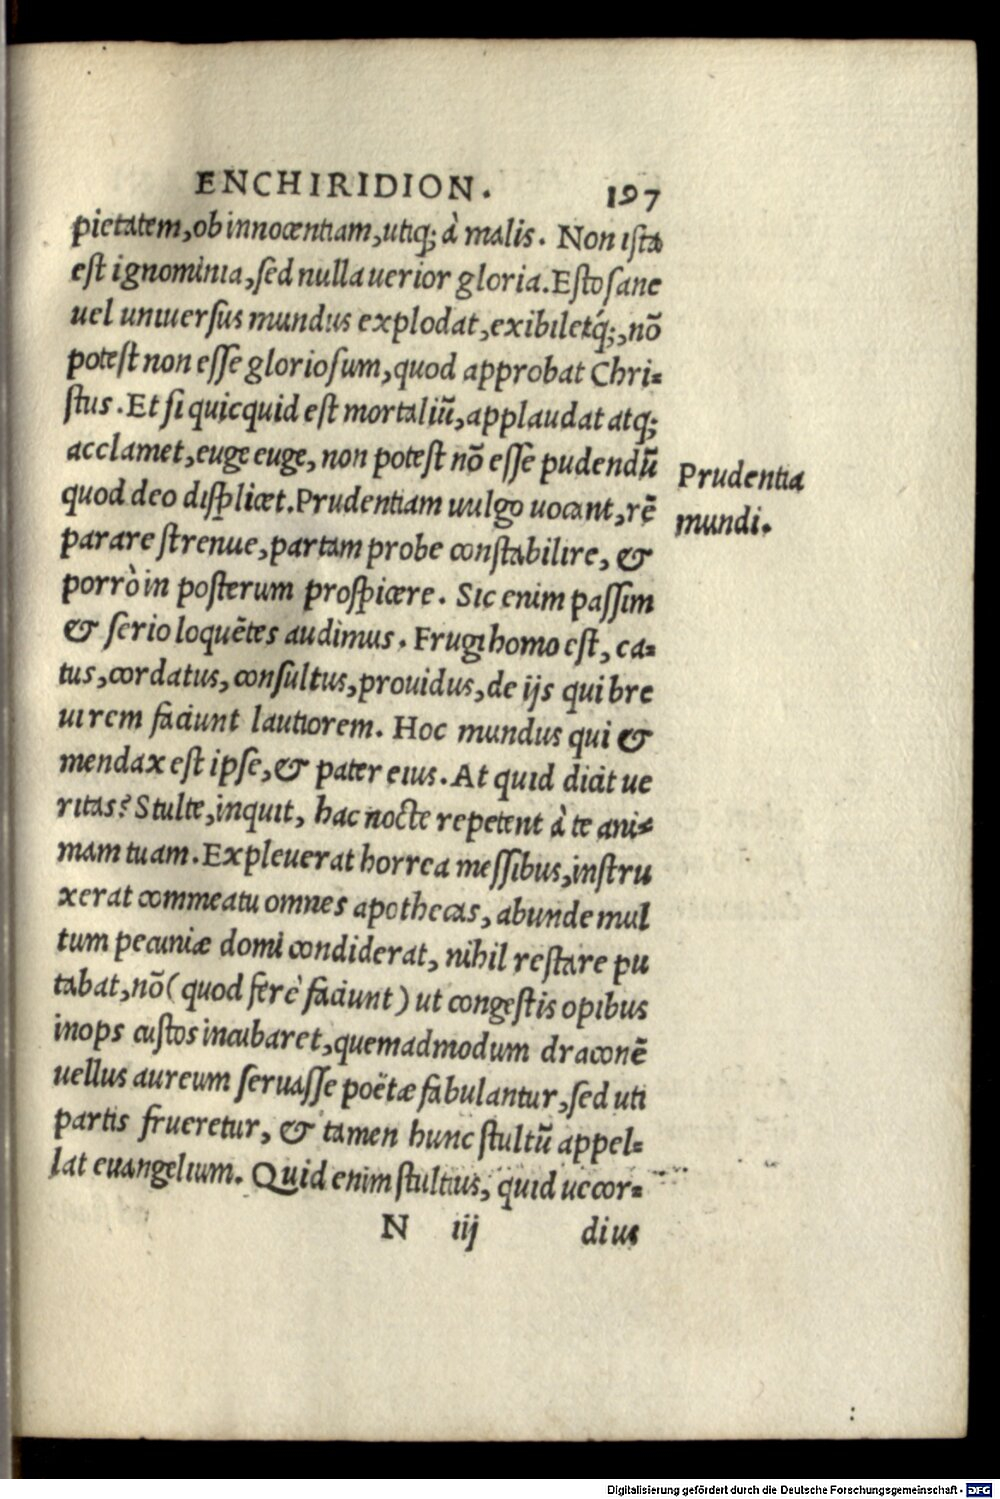 ENCHIRIDION. 197
pietatem, ob innocentiam, utiq; à malis. Non ista
est ignominia, sed nulla uerior gloria. Esto sane
uel uniuersus mundus explodat, exibiletq́;, nõ
potest non esse gloriosum, quod approbat Chri-
stus. Et si quicquid est mortaliũ, applaudat atq;
acclamet, euge euge, non potest nõ esse pudendũ
quod deo displicet. Prudentiam uulgo uocant, rẽ
parare strenue, partam probe constabilire, &
porrò in posterum prospicere. Sic enim passim
& serio loquẽtes audimus. Frugi homo est, ca-
tus, cordatus, consultus, prouidus, de ijs qui bre
ui rem faciunt lautiorem. Hoc mundus qui &
mendax est ipse, & pater eius. At quid dicit ue
ritas? Stulte, inquit, hac nocte repetent à te ani-
mam tuam. Expleuerat horrea messibus, instru
xerat commeatu omnes apothecas, abunde mul
tum pecuniæ domi condiderat, nihil restare pu
tabat, nõ (quod ferè faciunt) ut congestis opibus
inops custos incubaret, quemadmodum draconẽ
uellus aureum seruasse poëtæ fabulantur, sed uti
partis frueretur, & tamen hunc stultũ appel-
lat euangelium. Quid enim stultius, quid uecor-
N iij dius
Prudentia
mundi.
Digitalisierung gefördert durch die Deutsche Forschungsgemeinschaft - DFG